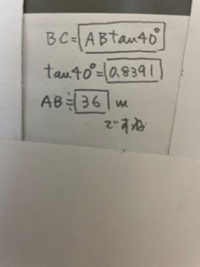 BC=ABtan40°
tan40°=0.8391
AB≒36 m
ですね